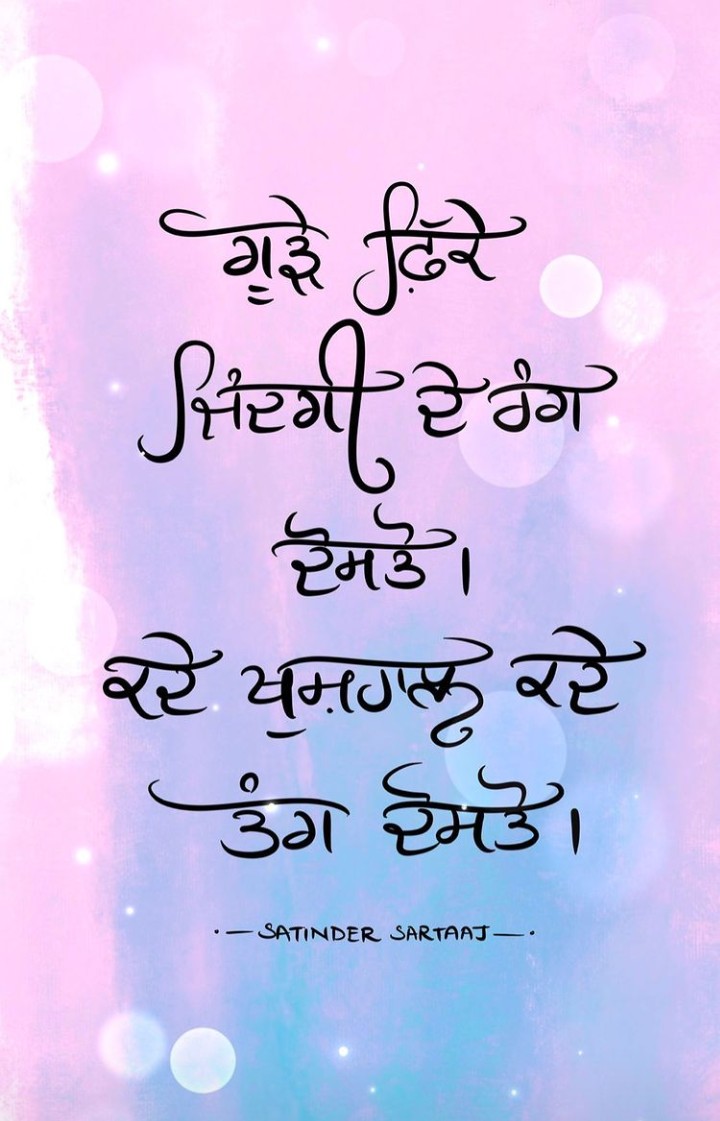 ਗੂੜੇ ਫ਼ਿੱਕੇ
ਜ਼ਿੰਦਗੀ ਦੇ ਰੰਗ
ਦੋਸਤੋ।
ਕਦੇ ਖੁਸ਼ਹਾਲ ਕਦੇ
ਤੰਗ ਦੋਸਤੋ।
·— SATINDER SARTAAJ —·